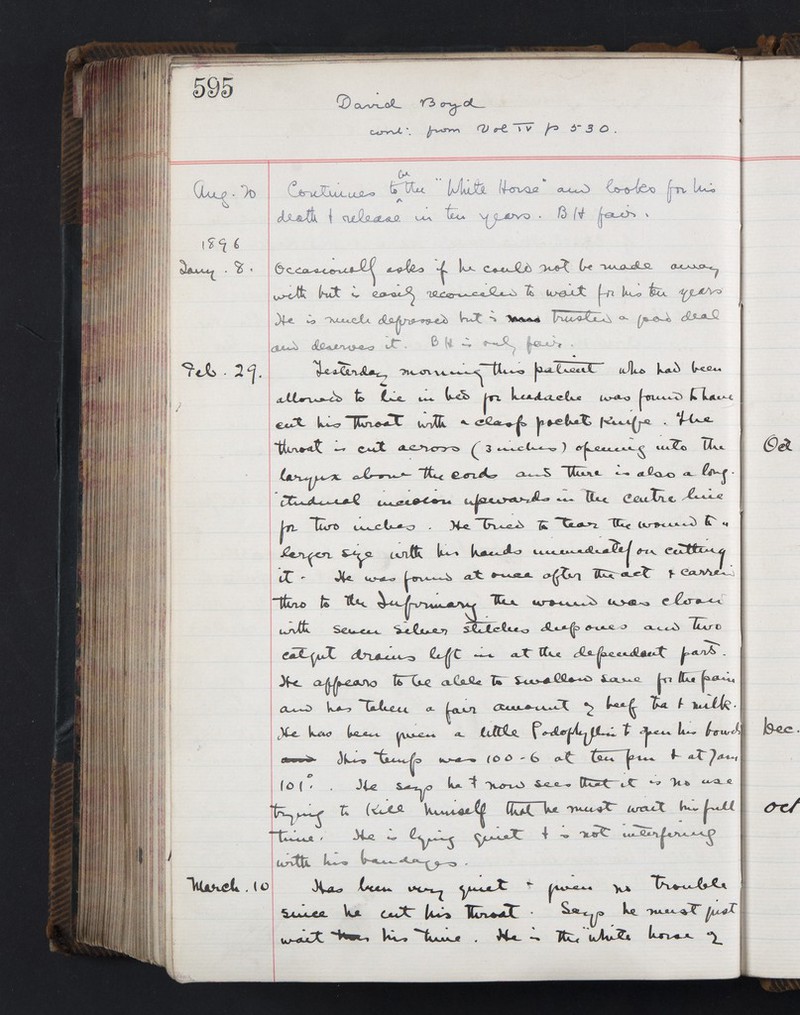 595
David Boyd
cont: from Vol IV p 530.
Aug. 20 Continues to be the "White Horse" and looks for his
death & release in ten years. BH fair.
1896
Jany. 8. Occasionally asks if he could not be made away
with but is easily reconciled to wait for his ten years
He is much depressed but is trusted a good deal
and deserves it. BH is only fair.
Feb. 29. Yesterday morning this patient who had been
allowed to lie in bed for headache was found to have
cut his throat with a clasp pocket knife. The
throat is cut across (3 inches) opening into the
larynx above the cords and there is also a long-
itudinal incision upwards in the centre line
for two inches. He tried to tear the wound to a
larger size with his hands immediately on cutting
it. He was found at once after the act & carried
thro to the Infirmary the wound was closed
with seven silver stitches deep ones and two
catgut drains left in at the dependent part.
He appears to be able to swallow save for the pain
and has taken a fair amount of beef tea & milk.
He has been given a little Podophyllin to open his bowels
His temp was 100-6 at ten pm & at 7am
101°. He says he now sees that it is no use
trying to kill himself that he must wait his full
time. He is lying quiet & is not interfering
with his bandages.
March. 10 Has been very quiet & given no trouble
since he cut his throat. Says he must just
wait his time. He is the "white horse of
Oct
Dec.
Oct